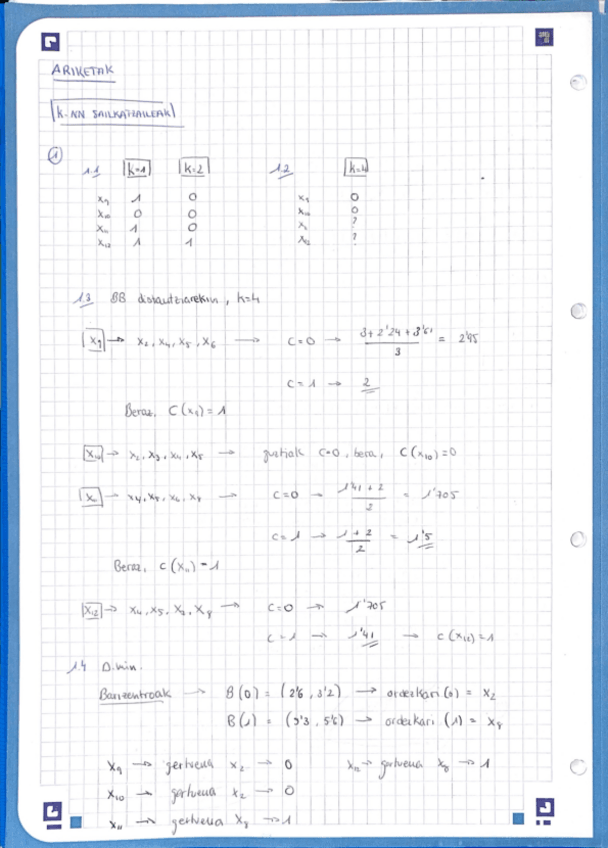 ARIKETAK
K-NN SAILKATZAILEAK
1
1.1 K=1 K=2 1.2 K=4
x9 1 0 x9 0
x10 0 0 x10 0
x11 1 0 x11 ?
x12 1 1 x12 ?
1.3 BB distantziarekin, k=4
x9 → x2, x4, x5, x6 → C=0 → 3+2'24+3'61 / 3 = 2'95
C=1 → 2
Beraz, C(x9)=1
x10 → x2, x3, x4, x5 → guztiak C=0, beraz, C(x10)=0
x11 → x4, x5, x6, x8 → C=0 → 1'41+2 / 2 = 1'705
C=1 → 1+2 / 2 = 1'5
Beraz, C(x11)=1
x12 → x4, x5, x7, x8 → C=0 → 1'705
C=1 → 1'41 → C(x12)=1
1.4 D.min.
Barizentroak → B(0) = (2'6, 3'2) → ordezkari (0) = x2
B(1) = (5'3, 5'6) → ordezkari (1) = x8
x9 → gertuena x2 → 0 x12 → gertuena x8 → 1
x10 → gertuena x2 → 0
x11 → gertuena x8 → 1